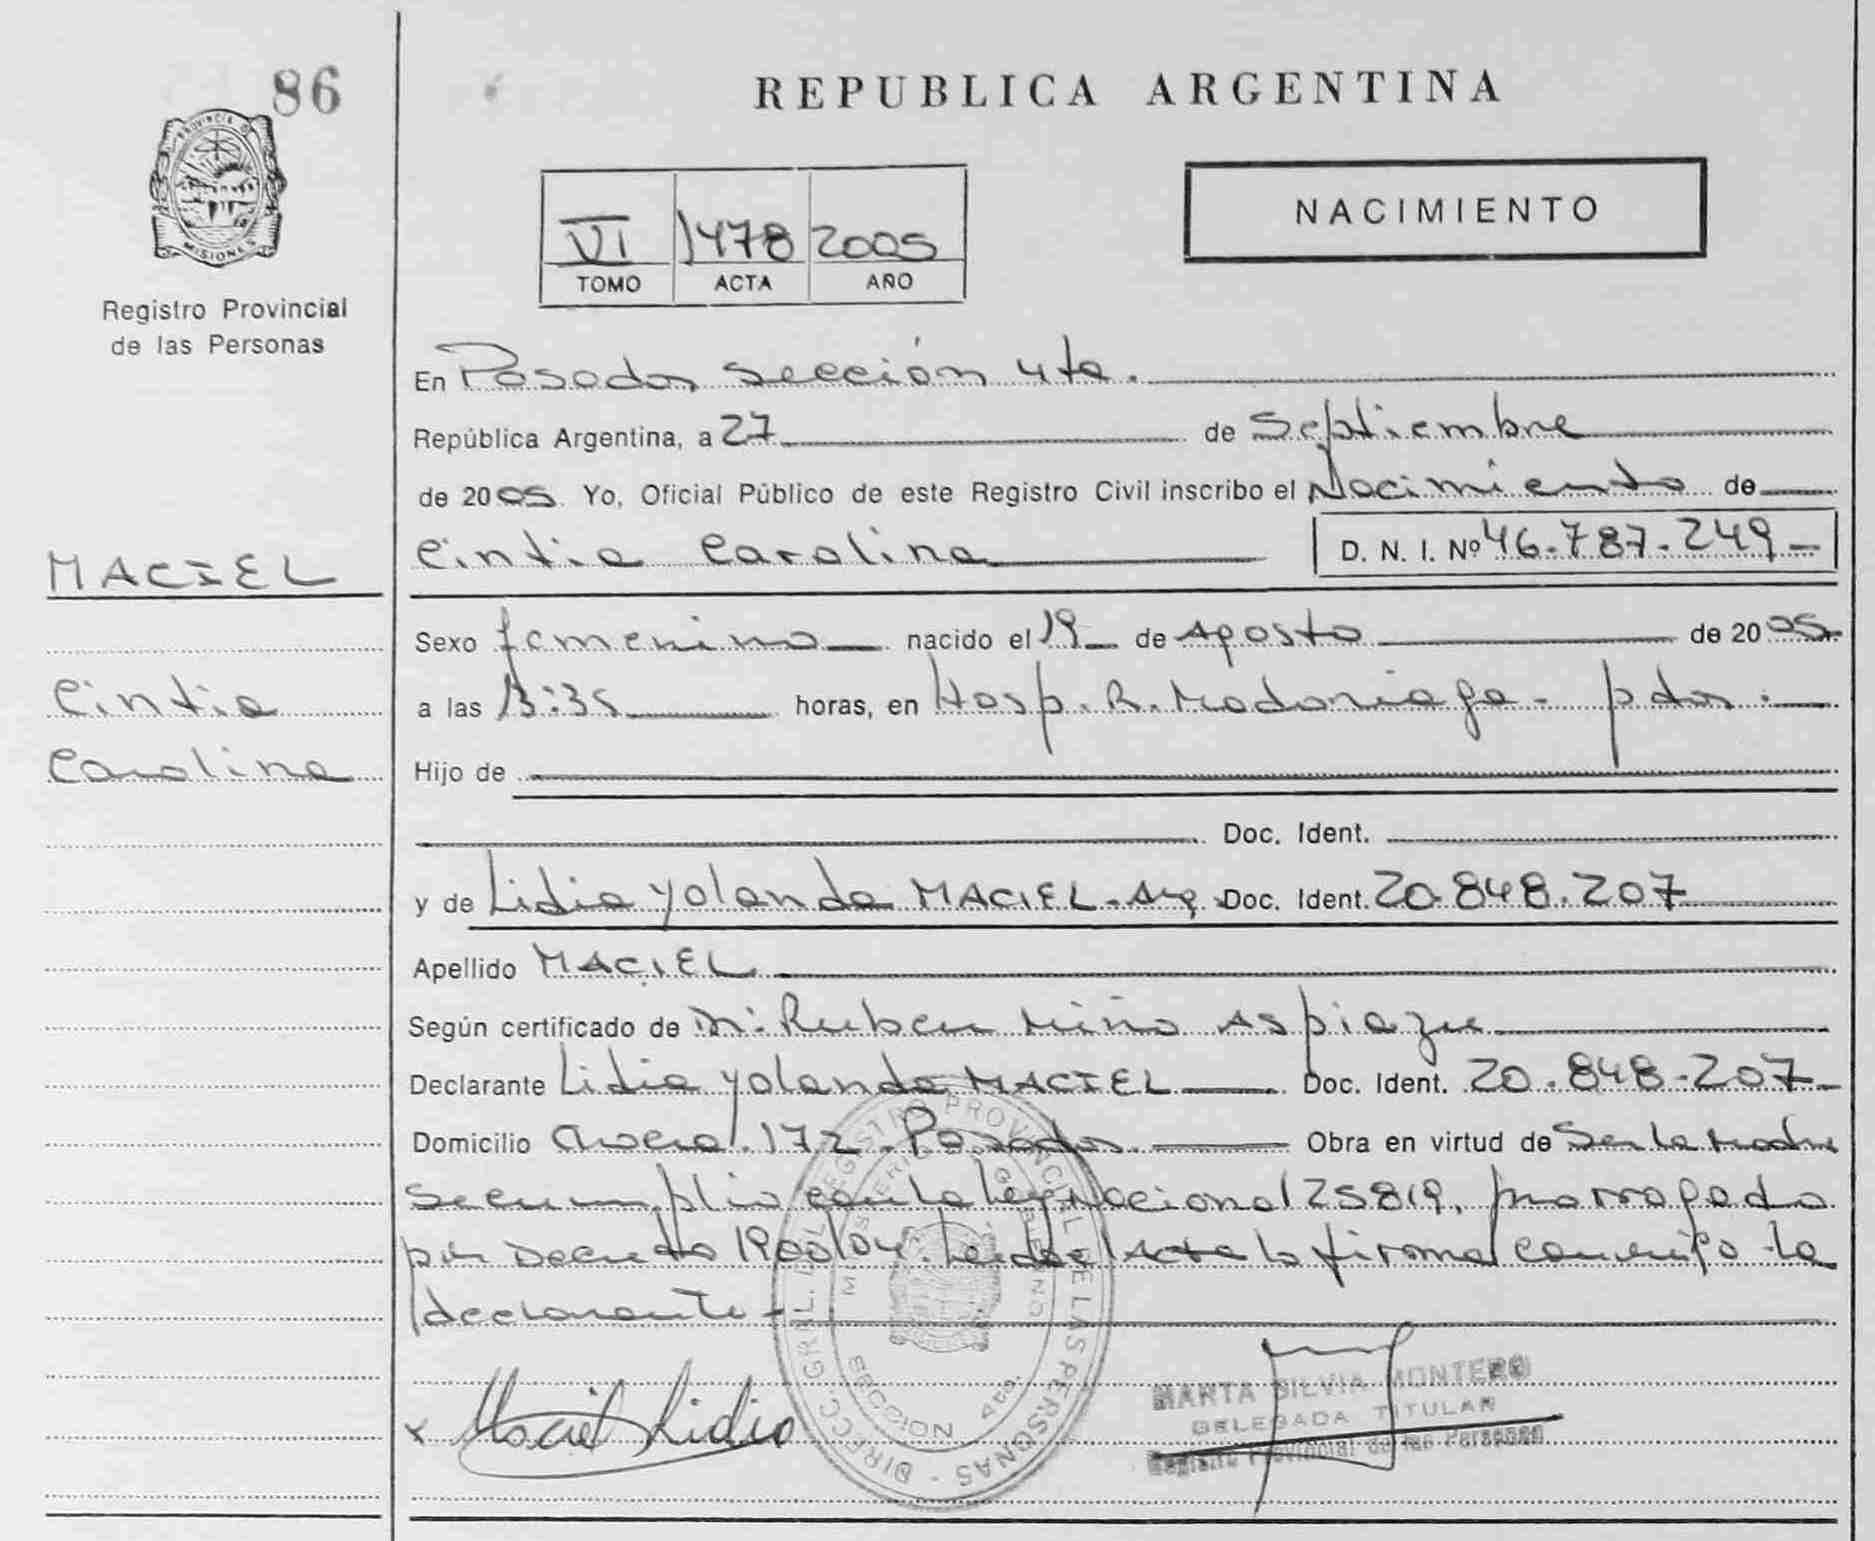 86
PROVINCIA DE
MISIONES
Registro Provincial
de las Personas
MACIEL
Cintia
Carolina
REPUBLICA ARGENTINA
VI 1478 2005
TOMO ACTA AÑO
NACIMIENTO
En Posadas sección 4ta.
República Argentina, a 27 de Septiembre
de 2005. Yo, Oficial Público de este Registro Civil inscribo el Nacimiento de
Cintia Carolina D. N. I. Nº 46.787.249
Sexo femenino nacido el 19 de Agosto de 2005
a las 13:35 horas, en Hosp. R. Madariaga - pdas.
Hijo de
Doc. Ident.
y de Lidia Yolanda MACIEL - Arg. Doc. Ident. 20.848.207
Apellido MACIEL
Según certificado de Dr. Ruben Miño Aspiazu
Declarante Lidia Yolanda MACIEL Doc. Ident. 20.848.207
Domicilio 172 - Posadas. Obra en virtud de Ser la Madre
Se cumplio con la Ley Nacional 25819, prorrogado
por Decreto 1900/04. Leida el Acta la firma conmigo la
declarante -
x Maciel Lidia
DIRECC. GRAL. DEL REGISTRO PROVINCIAL DE LAS PERSONAS
MARTA SILVIA MONTERO
DELEGADA TITULAR
Registro Provincial de las Personas